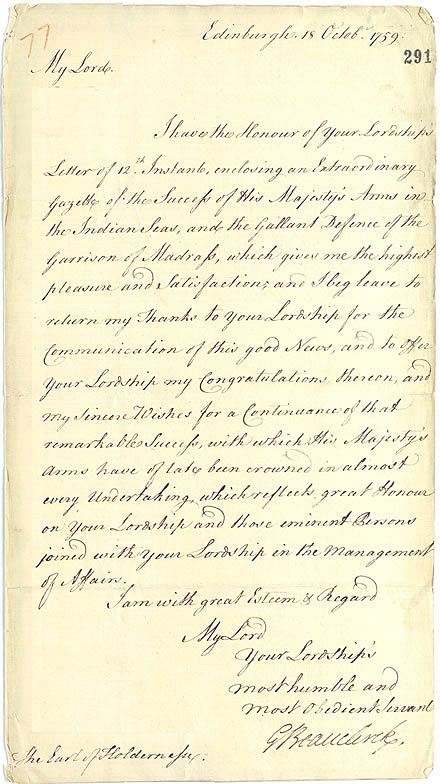 77
Edinburgh. 18 Octobr. 1759.
291
My Lord.
I have the Honour of Your Lordship's
Letter of 12.th Instant, enclosing an Extraordinary
Gazette of the Success of His Majesty's Arms in
the Indian Seas, and the Gallant Defence of the
Garrison of Madrass, which gives me the highest
pleasure and Satisfaction; and I beg leave to
return my Thanks to Your Lordship for the
Communication of this good News, and to offer
Your Lordship my Congratulations thereon, and
my sincere Wishes for a Continuance of that
remarkable Success, with which His Majesty's
Arms have of late been crowned in almost
every Undertaking, which reflects great Honour
on Your Lordship and those eminent Persons
joined with Your Lordship in the Management
of Affairs.
I am with great Esteem & Regard
My Lord
Your Lordship's
most humble and
most Obedient Servant
G Beauclerk.
The Earl of Holderness.